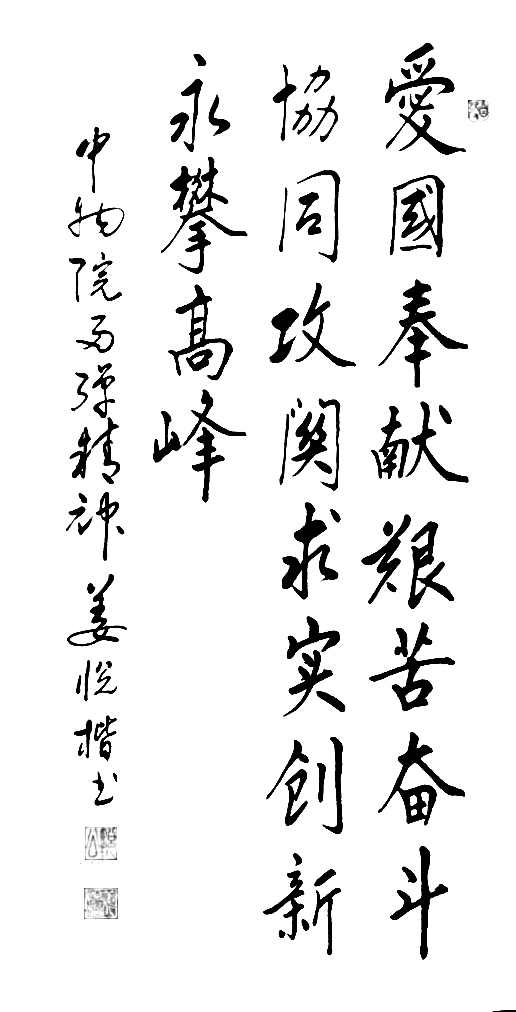 愛國奉献艱苦奋斗
協同攻関求实创新
永攀高峰
中物院两弹精神姜悦楷书